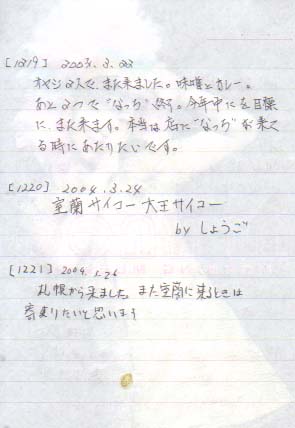 [1219] 2004. 3. 22
オヤジ2人で、また来ました。味噌とカレー。
あと2つで"なっち"終了。今年中にを目標
に、また来ます。本当は店に"なっち"が来て
る時にあたりたいです。
[1220] 2004. 3. 24
室蘭サイコー 大王サイコー
by しょうご
[1221] 2004. 3. 26
札幌から来ました。また室蘭に来るときは
寄りたいと思います